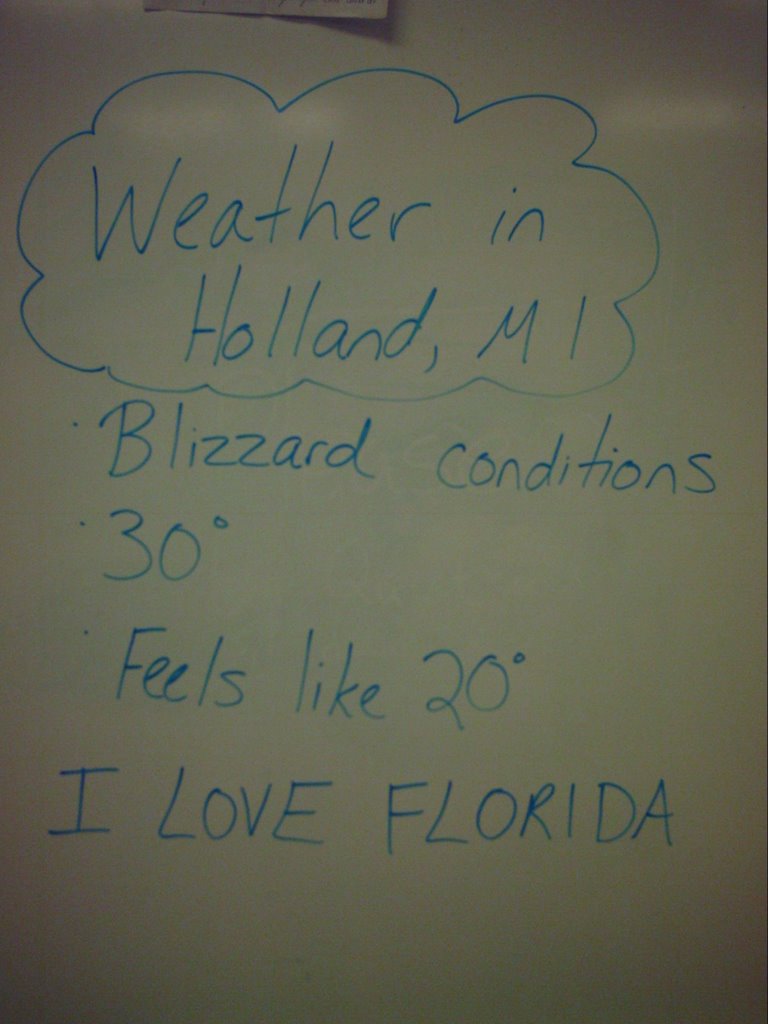 Weather in
Holland, MI
· Blizzard conditions
· 30°
· Feels like 20°
I LOVE FLORIDA